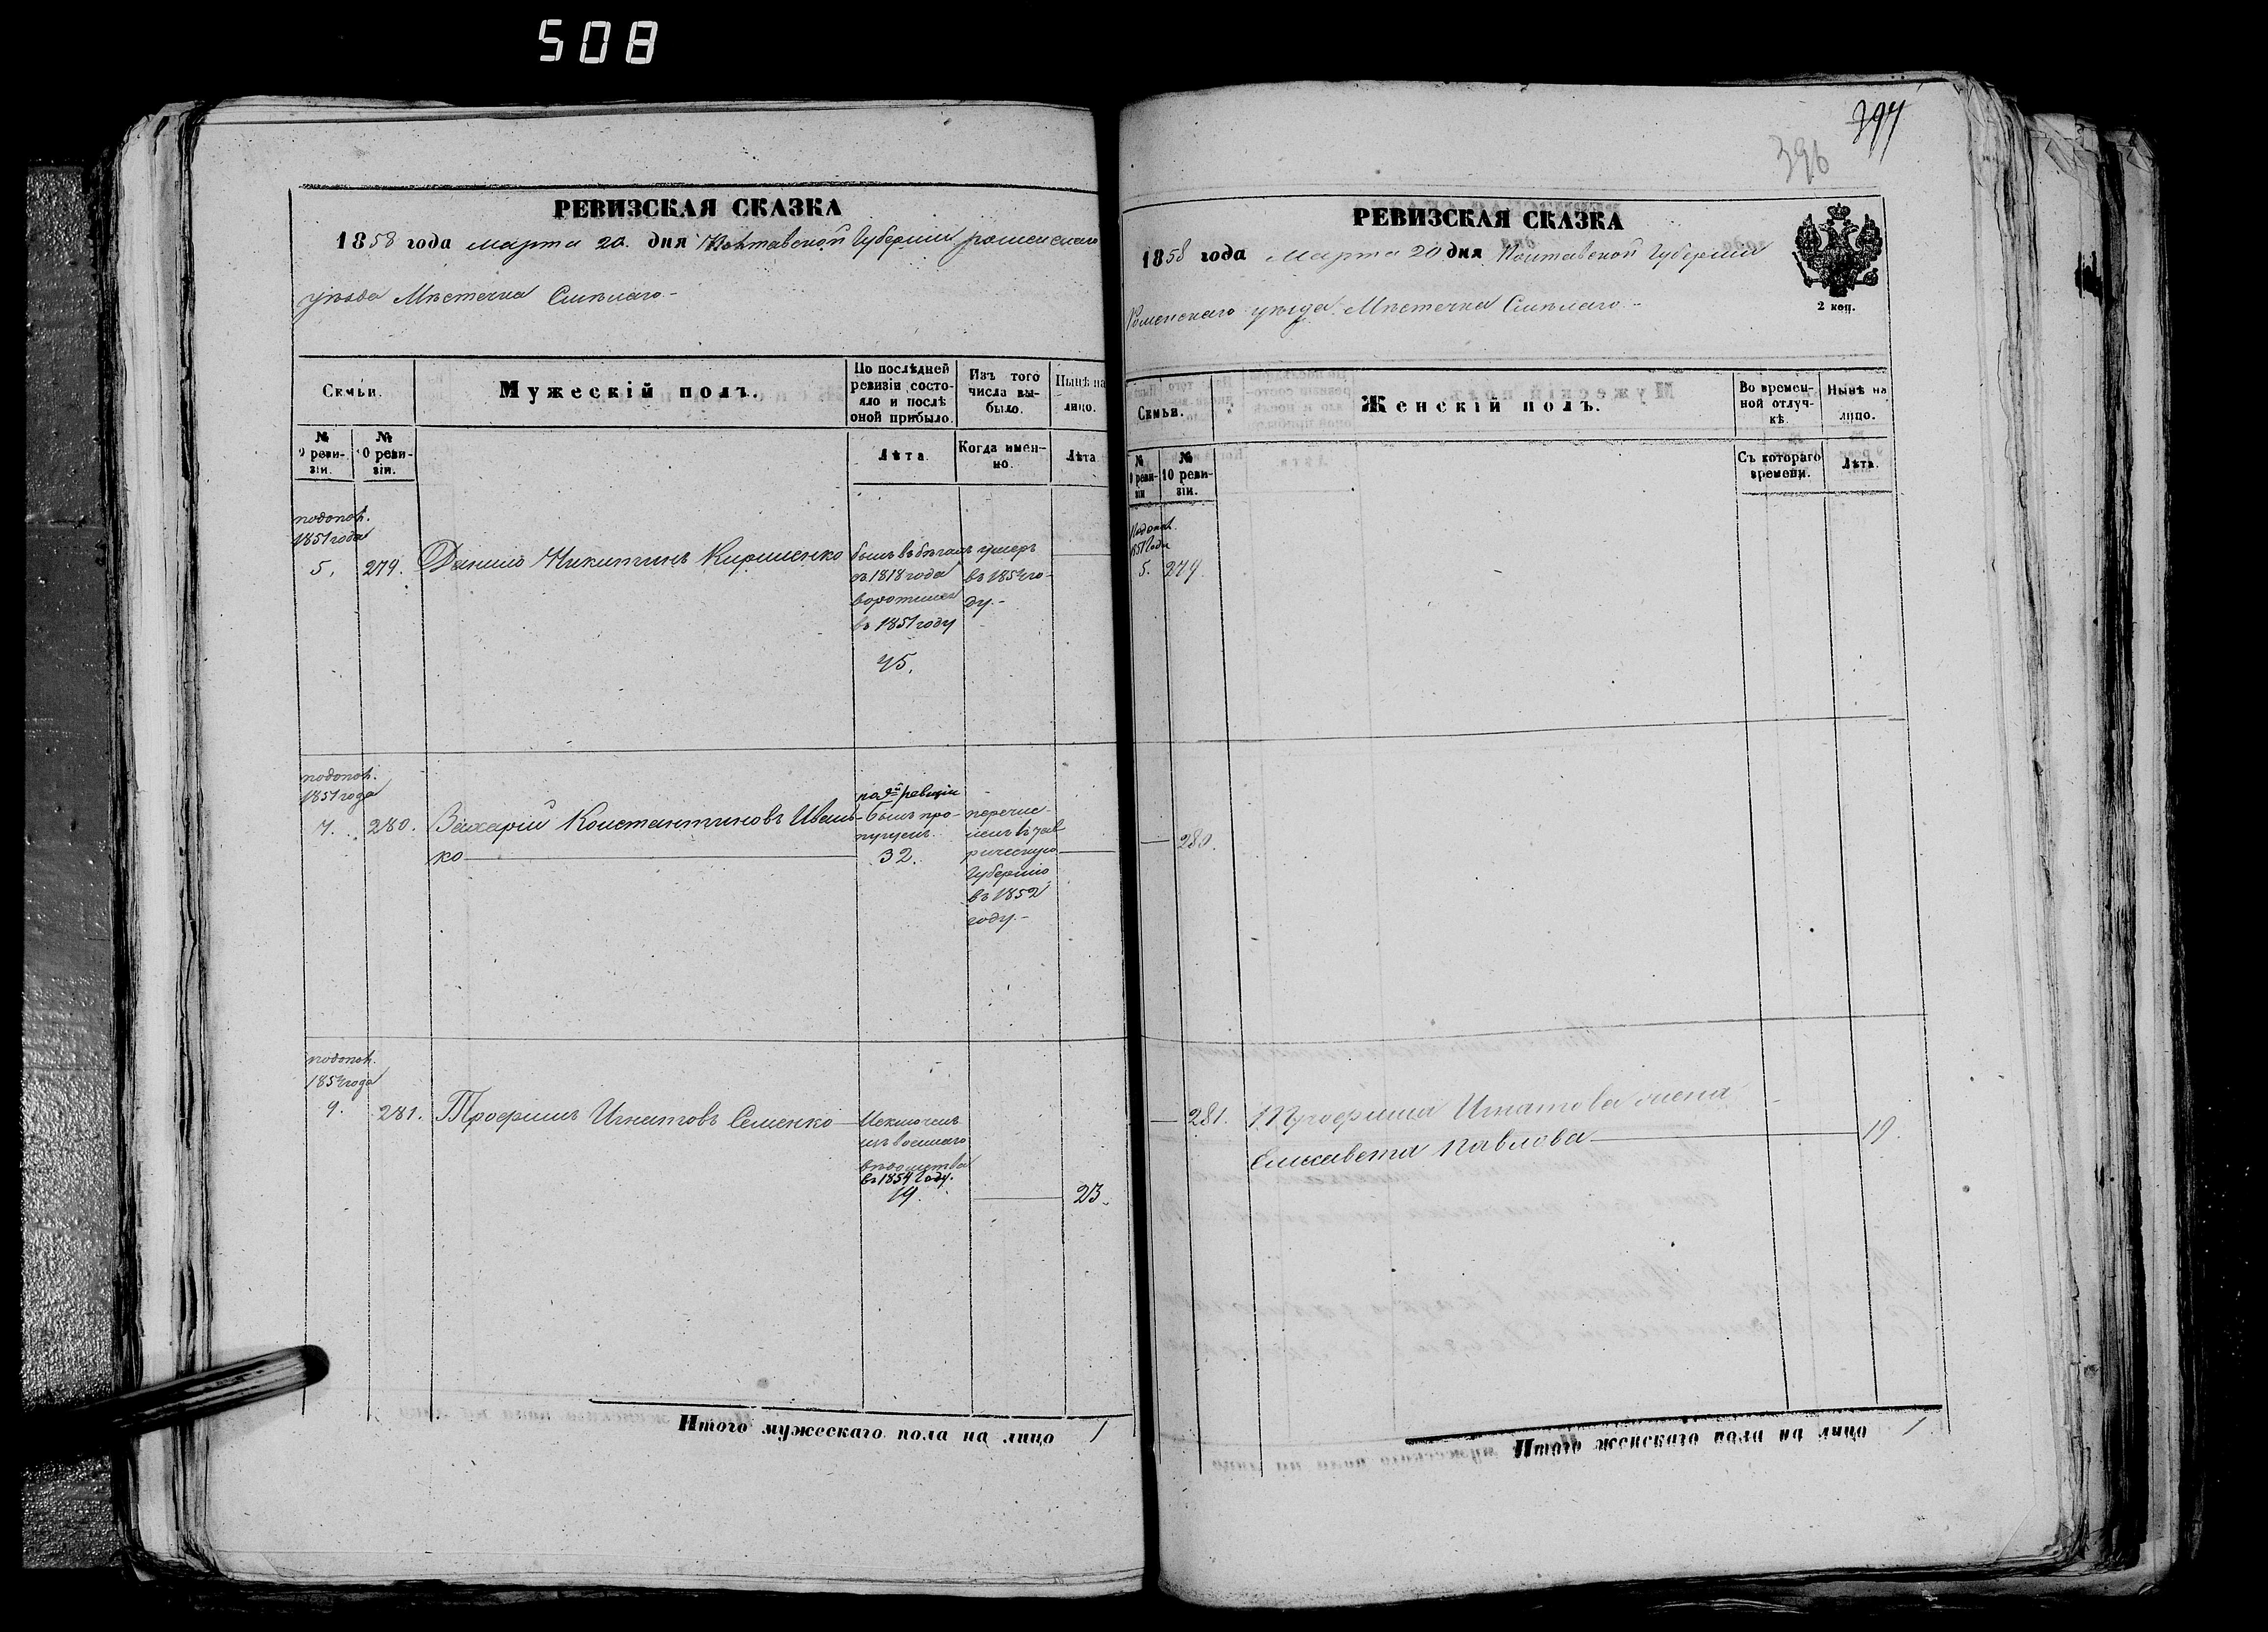 508
РЕВИЗСКАЯ СКАЗКА
1858 года марта 20. дня Полтавской Губерніи роменскаго
уѣзда Мѣстечка Смѣлаго.-
Семьи.
Мужескій полъ.
По послѣдней ревизіи состояло и послѣ оной прибыло.
Изъ того числа выбыло.
Нынѣ на лицо.
№ 9 ревизіи.
№ 10 ревизіи.
Лѣта.
Когда именно.
Лѣта
подопол.
1851 года
5. 279. Данило Никитинъ Кириленко
былъ въ бѣгахъ
съ 1818 года
воротился
въ 1851 году
45.
умеръ
въ 1854 го-
ду.-
подопол.
1851 года
7. 280. Захарій Константиновъ Ивань-
ко
по 9й ревизіи
былъ про-
пущенъ.
32.
перечис-
ленъ въ Тав-
рическую
Губернію
въ 1852
году.-
подопол.
1854 года
9. 281. Трофимъ Игнатовъ Семенко
Исключенъ
изъ военнаго
вѣдомства
въ 1854 Году.
19.
23.
Итого мужескаго пола на лицо 1
397
396
РЕВИЗСКАЯ СКАЗКА
1858 года Марта 20 дня Полтавской Губерніи
Роменскаго уѣзда Мѣстечка Смѣлаго.-
2 коп.
Семьи.
Женскій полъ.
Во временной отлучкѣ.
Нынѣ на лицо.
№ 9 ревизіи
№ 10 ревизіи.
Съ котораго времени.
Лѣта.
Подопол.
1851 Года
5. 279.
280.
281. Трофима Игнатова жена
Елисавета Павлова 19.
Итого женскаго пола на лицо 1